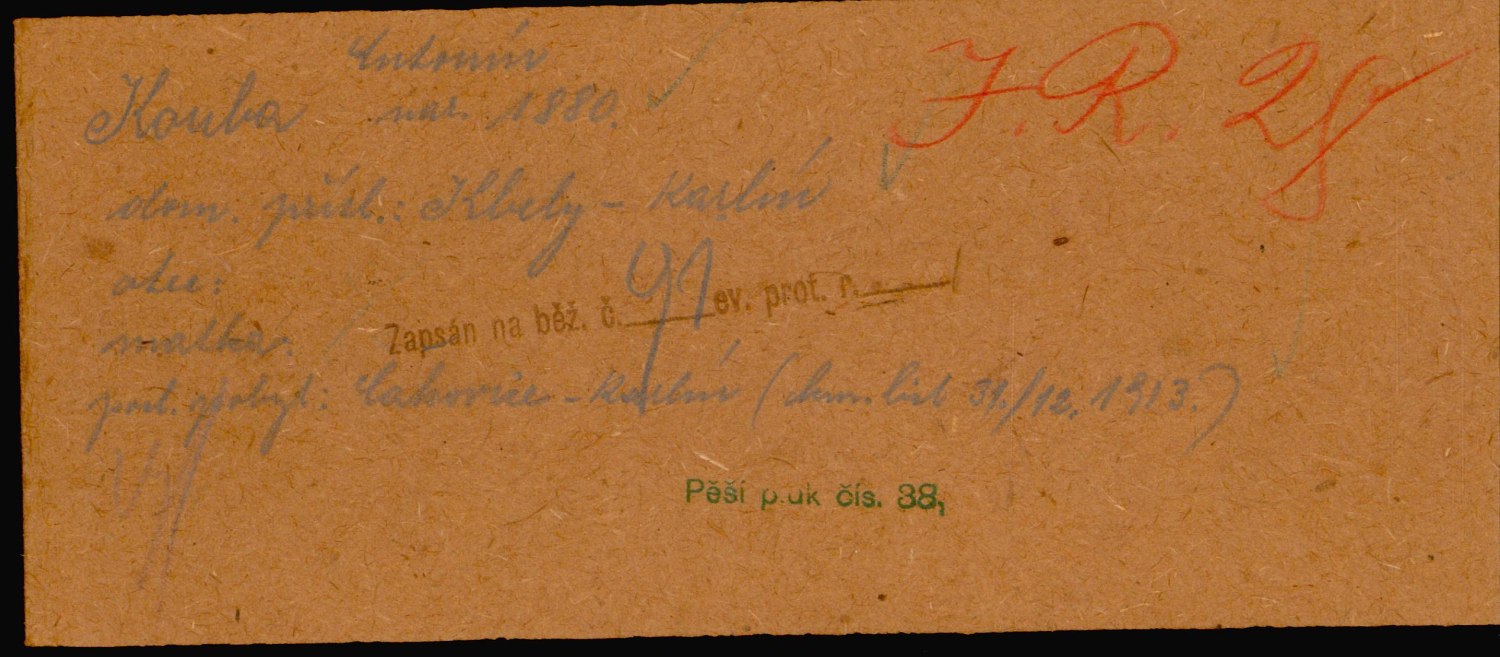 Antonín
Kouba nar. 1880.
J. R. 28
dom. přísl.: Kbely - Karlín
otec:
matka:
Zapsán na běž. č. 91 ev. prot. r.
post. pobyt: - Karlín ( dom. list 31./12. 1913.)
Pěší pluk čís. 38,